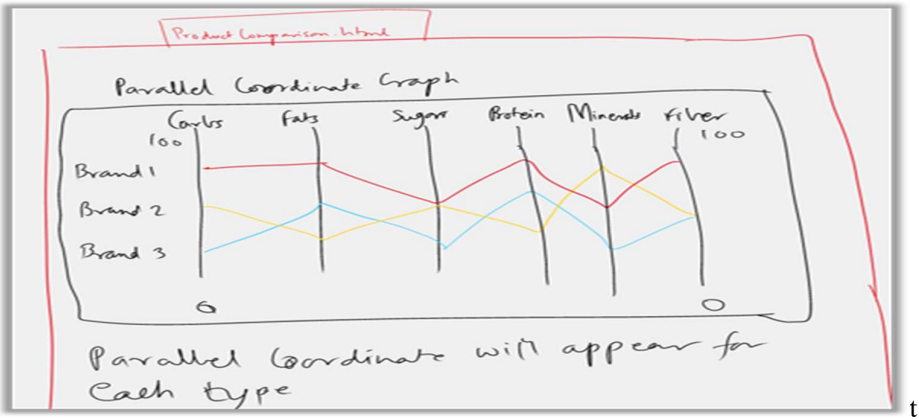 ProductComparison.html
Parallel Coordinate Graph
Carbs Fats Sugars Protein Minerals Fiber
100 100
Brand 1
Brand 2
Brand 3
0 0
Parallel Coordinate will appear for
Each type
t